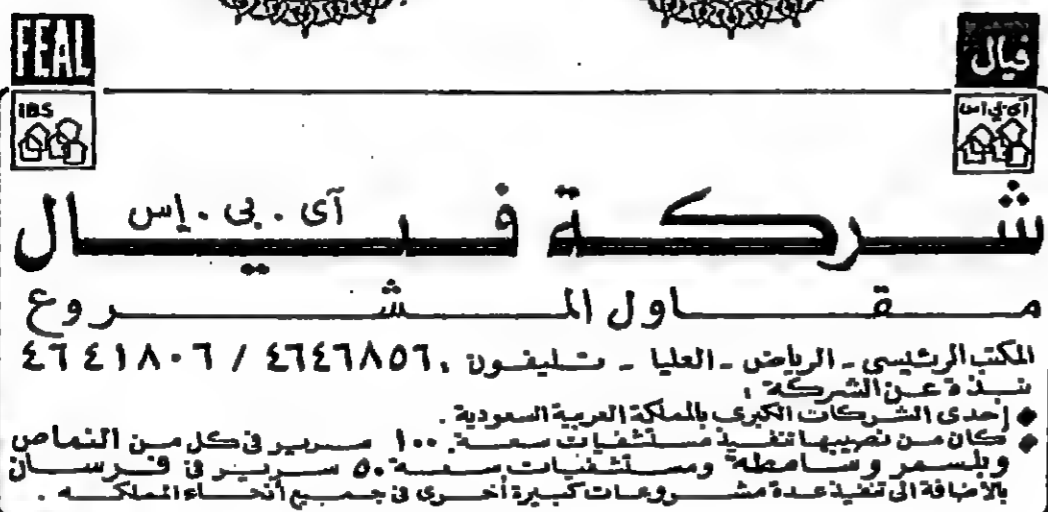 FEAL
فيال
IBS
آى بي اس
شركة فيال آى . بى . إس
مقاول المشروع
المكتب الرئيسى - الرياض - العليا - تليفون : ٤٦٤٦٨٥٦ / ٤٦٤١٨٠٦
نبذة عن الشركة :
إحدى الشركات الكبرى بالمملكة العربية السعودية .
كان من نصيبها تنفيذ مستشفيات سعة ١٠٠ سرير فى كل من النماص
وبلسمر وسامطه ومستشفيات سعة ٥٠ سرير فى فرسان
بالاضافة الى تنفيذ عدة مشروعات كبيرة أخرى فى جميع أنحاء المملكه .